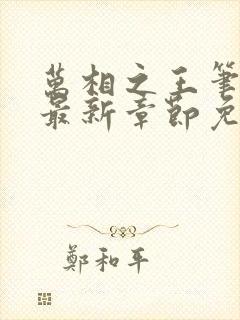 萬相之王筆
最新章節免
鄭和平